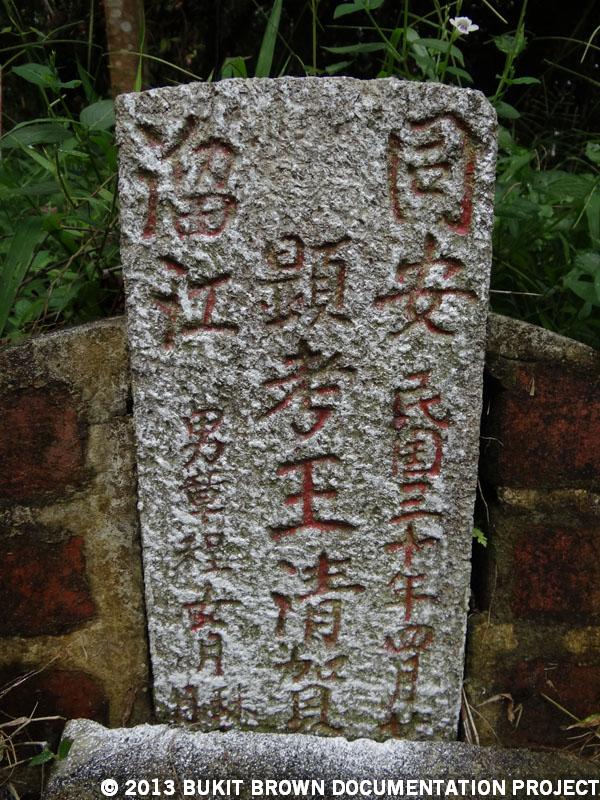 同安 民国三十年四月
顕考王清賀
溜江 男華程 女月琳
© 2013 BUKIT BROWN DOCUMENTATION PROJECT